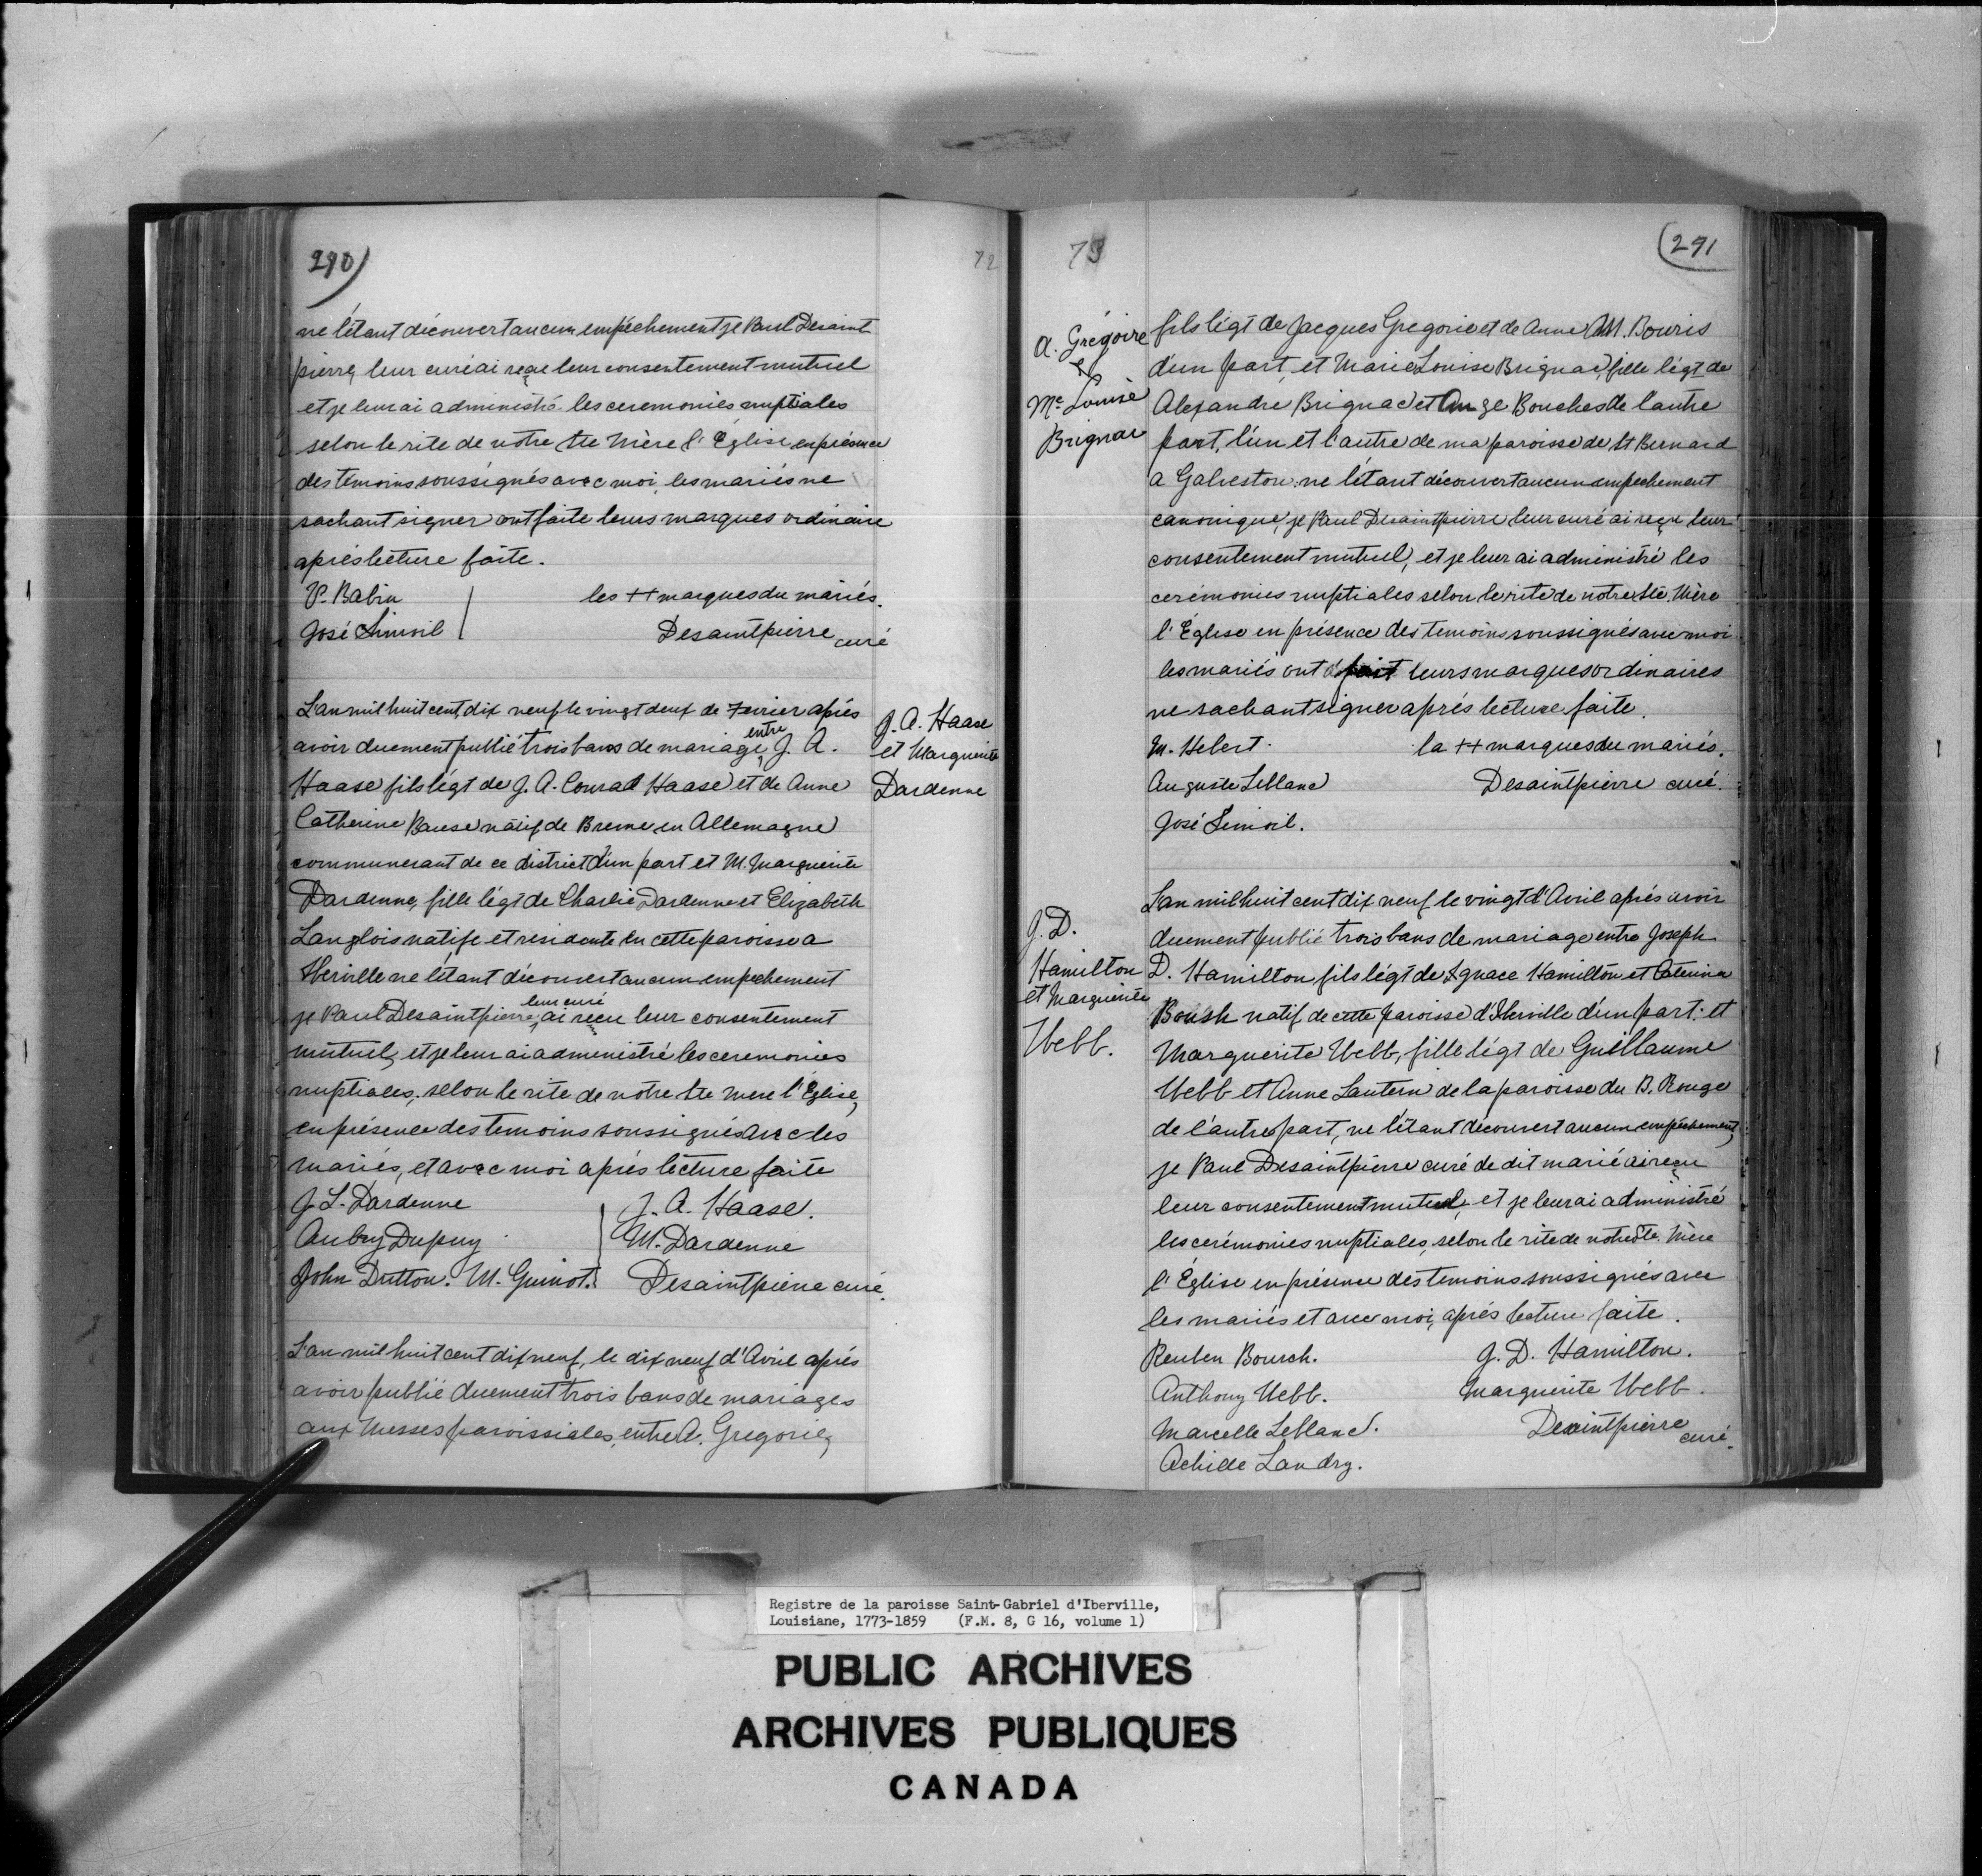 290)
72
ne l'étant découvert aucun empéchement je Paul Desaint
pierre, leur curé ai reçue leur consentement mutuel
et je leur ai administré les ceremonies nuptiales
selon le rite de notre Ste Mère l'Église en présence
des temoins soussignés avec moi, les mariés ne
sachant signer ont faite leurs marques ordinaire
aprés lecture faite.
V. Babin
les ++ marques du mariés.
José
Desaintpierre curé
L'an mil huit cent, dix neuf le vingt deux de Fevrier aprés
avoir duement publié trois bans de mariage, entre J. A.
Haase fils légt de J. A. Conrad Haase et de Anne
Catherine Banse natif de Breme en Allemagne
communerant de ce district d'un part et M. Marguerite
Dardenne, fille légt de Charlie Dardenne et Elizabeth
Langlois natife et residente en cette paroisse a
Iberville ne l'étant découvert aucun empechement
je Paul Desaintpierre, leur curé ai reçu leur consentement
mutuel, et je leur ai administré les ceremonies
nuptiales, selon le rite de notre Ste Mere l'Église,
en présence des temoins soussignés avec les
mariés, et avec moi aprés lecture faite
J. A. Haase
et Marguerite
Dardenne
J L. Dardenne
J. A. Haase.
Aubry Dupuy
M. Dardenne
John Dutton. M. Guinot.
Desaintpierre curé.
L'an mil huit cent dix neuf, le dix neuf d'Avril aprés
avoir publié duement trois bans de mariages
aux Messes paroissiales, entre A. Gregorie,
73
(291
A. Grégoire
&
Me Louise
Brignac
fils légt de Jacques Gregorie et de Anne M. Bouris
d'un part, et Marie Louise Brignac, fille légt de
Alexandre Brignac et Ange Bouches de l'autre
part, l'un et l'autre de ma paroisse de St Bernard
a Galveston: ne l'étant découvert aucun empechement
canonique, je Paul Desaintpierre leur curé ai reçu leur
consentement mutuel, et je leur ai administré les
cerémonies nuptiales selon le rite de notre Ste. Mère
l'Église en présence des temoins soussignés avec moi
les mariés ont fait leurs marques ordinaires
ne sachant signer aprés lecture faite.
M. Hebert.
la ++ marques du mariés.
Auguste Leblanc
Desaintpierre curé.
José
J. D.
Hamilton
et Marguerite
Webb.
L'an mil huit cent dix neuf le vingt d'Avril aprés avoir
duement publié trois bans de mariage entre Joseph
D. Hamilton fils légt de Ignace Hamilton et Caterina
Boush natif de cette paroisse d'Iberville d'un part. et
Marguerite Webb, fille légt de Guillaume
Webb et Anne Lantern de la paroisse du B. Rouge
de l'autre part, ne l'étant découvert aucun empéchement,
je Paul Desaintpierre curé de dit marié ai reçu
leur consentement mutuel, et je leur ai administré
les cerémonies nuptiales, selon le rite de notre Ste. Mère
l'Église en présence des temoins soussignés avec
les mariés et avec moi, aprés lecture faite.
Reuben Bousch.
J. D. Hamilton.
Anthony Webb.
Marguerite Webb.
Marcelle Leblanc.
Desaintpierre curé.
Achille Landry.
Registre de la paroisse Saint-Gabriel d'Iberville,
Louisiane, 1773-1859 (F.M. 8, G 16, volume 1)
PUBLIC ARCHIVES
ARCHIVES PUBLIQUES
CANADA